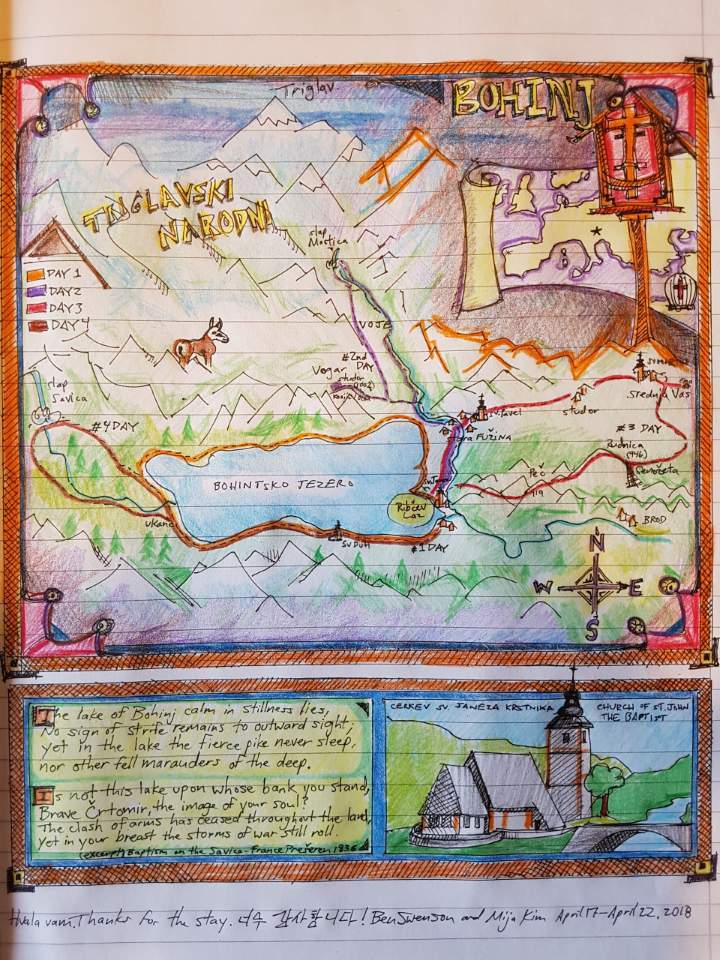 Triglav
BOHINJ
TRIGLAVSKI
NARODNI
slap
Mostica
DAY 1
DAY 2
DAY 3
DAY 4
VOJE
#2nd
DAY
Vogar
studor
slap
Savica
#4 DAY
sv. Pavel
studor
Srednja Vas
#3 DAY
Rudnica
(946)
Senožeta
FUŽINA
Peč
BOHINTSKO JEZERO
Ribčev
Laz
BROD
Ukanc
SV DUH
#1 DAY
N
W
E
S
The lake of Bohinj calm in stillness lies,
No sign of strife remains to outward sight;
yet in the lake the fierce pike never sleep,
nor other fell marauders of the deep.
Is not this lake upon whose bank you stand,
Brave Črtomir, the image of your soul?
The clash of arms has ceased throughout the land,
yet in your breast the storms of war still roll.
(excerpt) Baptism on the Savica-France Prešeren 1836
CERKEV SV. JANEZA KRSTNIKA
CHURCH OF ST. JOHN
THE BAPTIST
Hvala vam. Thanks for the stay. 너무 감사합니다! Ben Swenson and Mija Kim April 17-April 22, 2018